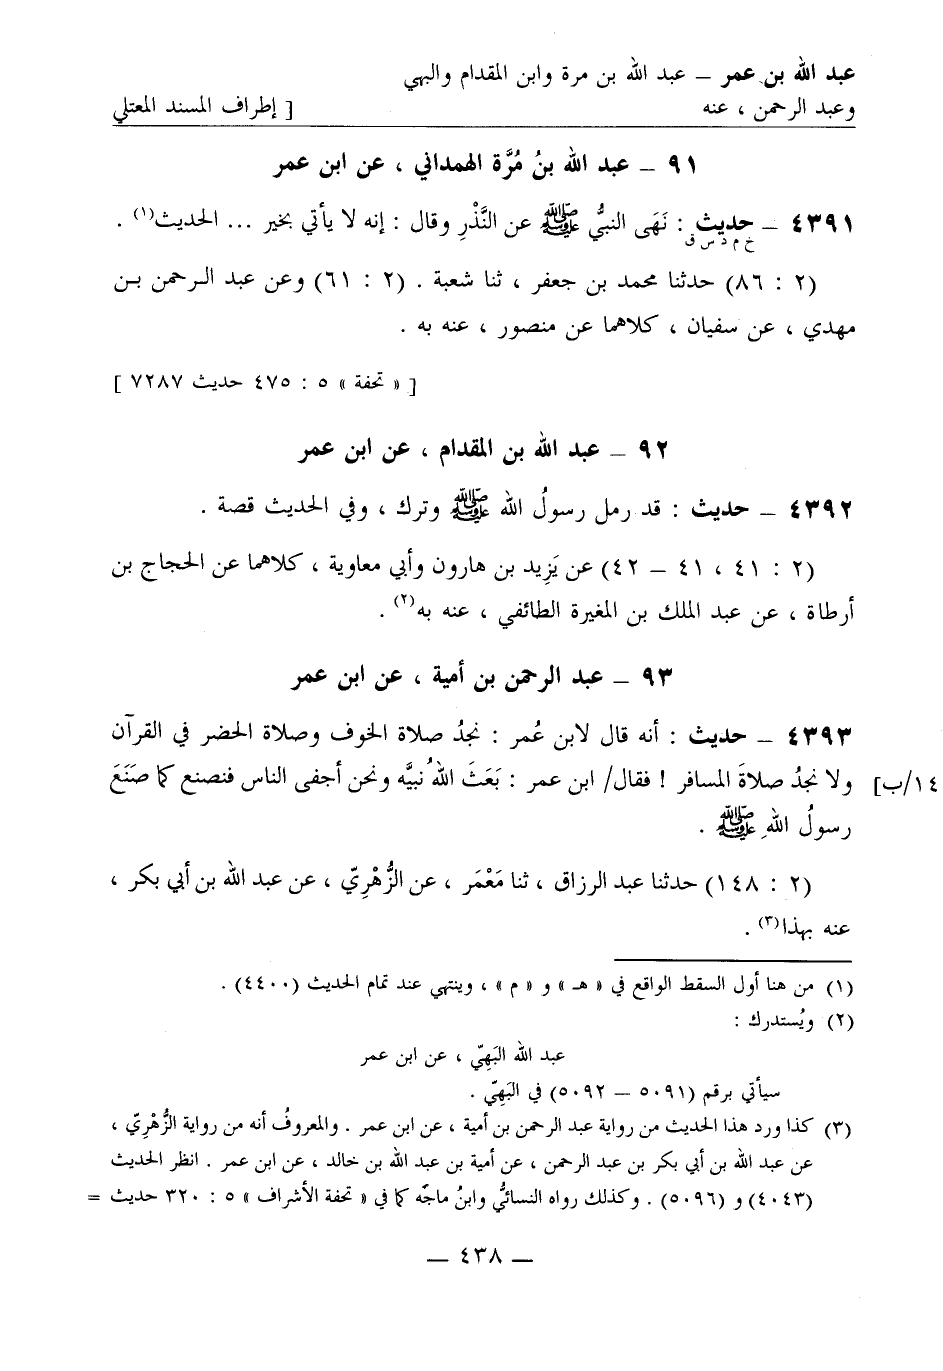 عبد الله بن عمر – عبد الله بن مرة وابن المقدام والبهي
وعبد الرحمن ، عنه [ إطراف المسند المعتلي
٩١ – عبد الله بنُ مُرَّة الهمداني ، عن ابن عمر
٤٣٩١ – حديث : نَهَى النبيُّ ﷺ عن النَّذْرِ وقال : إنه لا يأتي بخير ... الحديث(١) .
خ م د س ق
(٢ : ٨٦) حدثنا محمد بن جعفر ، ثنا شعبة . (٢ : ٦١) وعن عبد الرحمن بن
مهدي ، عن سفيان ، كلاهما عن منصور ، عنه به .
[ « تحفة » ٥ : ٤٧٥ حديث ٧٢٨٧ ]
٩٢ – عبد الله بن المقدام ، عن ابن عمر
٤٣٩٢ – حديث : قد رمل رسولُ الله ﷺ وترك ، وفي الحديث قصة .
(٢ : ٤١ ، ٤١ – ٤٢) عن يَزِيد بن هارون وأبي معاوية ، كلاهما عن الحجاج بن
أرطاة ، عن عبد الملك بن المغيرة الطائفي ، عنه به(٢) .
٩٣ – عبد الرحمن بن أمية ، عن ابن عمر
٤٣٩٣ – حديث : أنه قال لابن عُمر : نجدُ صلاة الخوف وصلاة الحضر في القرآن
١٤/ب] ولا نجدُ صلاةَ المسافر ! فقال/ ابن عمر : بَعَثَ اللهُ نبيَّه ونحن أجفى الناس فنصنع كما صَنَعَ
رسولُ اللهِ ﷺ .
(٢ : ١٤٨) حدثنا عبد الرزاق ، ثنا مَعْمَر ، عن الزُّهْرِيّ ، عن عبد الله بن أبي بكر ،
عنه بهذا(٣) .
(١) من هنا أول السقط الواقع في « هـ » و « م » ، وينتهي عند تمام الحديث (٤٤٠٠) .
(٢) ويُستدرك :
عبد الله البَهِيّ ، عن ابن عمر
سيأتي برقم (٥٠٩١ – ٥٠٩٢) في البَهِيّ .
(٣) كذا ورد هذا الحديث من رواية عبد الرحمن بن أمية ، عن ابن عمر . والمعروفُ أنه من رواية الزُّهْرِيّ ،
عن عبد الله بن أبي بكر بن عبد الرحمن ، عن أمية بن عبد الله بن خالد ، عن ابن عمر . انظر الحديث
(٤٠٤٣) و (٥٠٩٦) . وكذلك رواه النسائيُّ وابنُ ماجّه كما في « تحفة الأشراف » ٥ : ٣٢٠ حديث =
– ٤٣٨ –